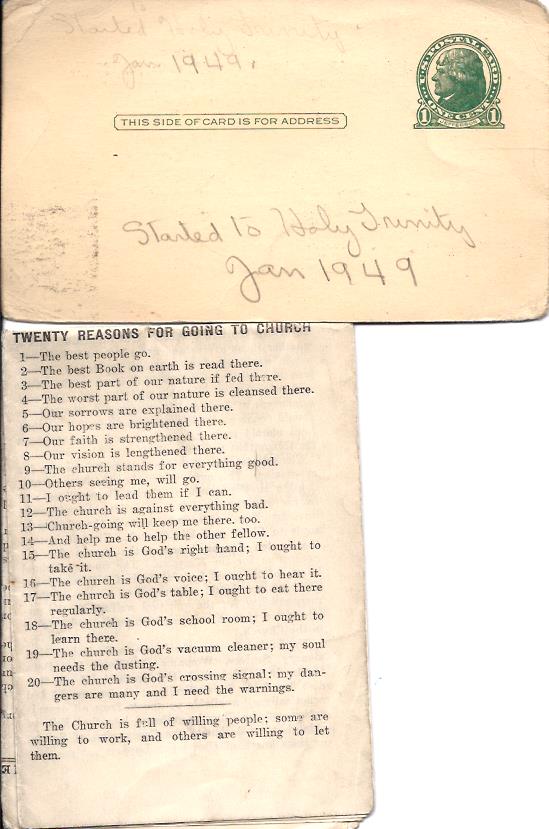 Started Holy Trinity
Jan 1949.
U.S. POSTAL CARD
ONE CENT
1 JEFFERSON 1
THIS SIDE OF CARD IS FOR ADDRESS
Started to Holy Trinity
Jan 1949
TWENTY REASONS FOR GOING TO CHURCH
1—The best people go.
2—The best Book on earth is read there.
3—The best part of our nature if fed there.
4—The worst part of our nature is cleansed there.
5—Our sorrows are explained there.
6—Our hopes are brightened there.
7—Our faith is strengthened there.
8—Our vision is lengthened there.
9—The church stands for everything good.
10—Others seeing me, will go.
11—I ought to lead them if I can.
12—The church is against everything bad.
13—Church-going will keep me there. too.
14—And help me to help the other fellow.
15—The church is God's right hand; I ought to
take it.
16—The church is God's voice; I ought to hear it.
17—The church is God's table; I ought to eat there
regularly.
18—The church is God's school room; I ought to
learn there.
19—The church is God's vacuum cleaner; my soul
needs the dusting.
20—The church is God's crossing signal; my dan-
gers are many and I need the warnings.
The Church is full of willing people; some are
willing to work, and others are willing to let
them.